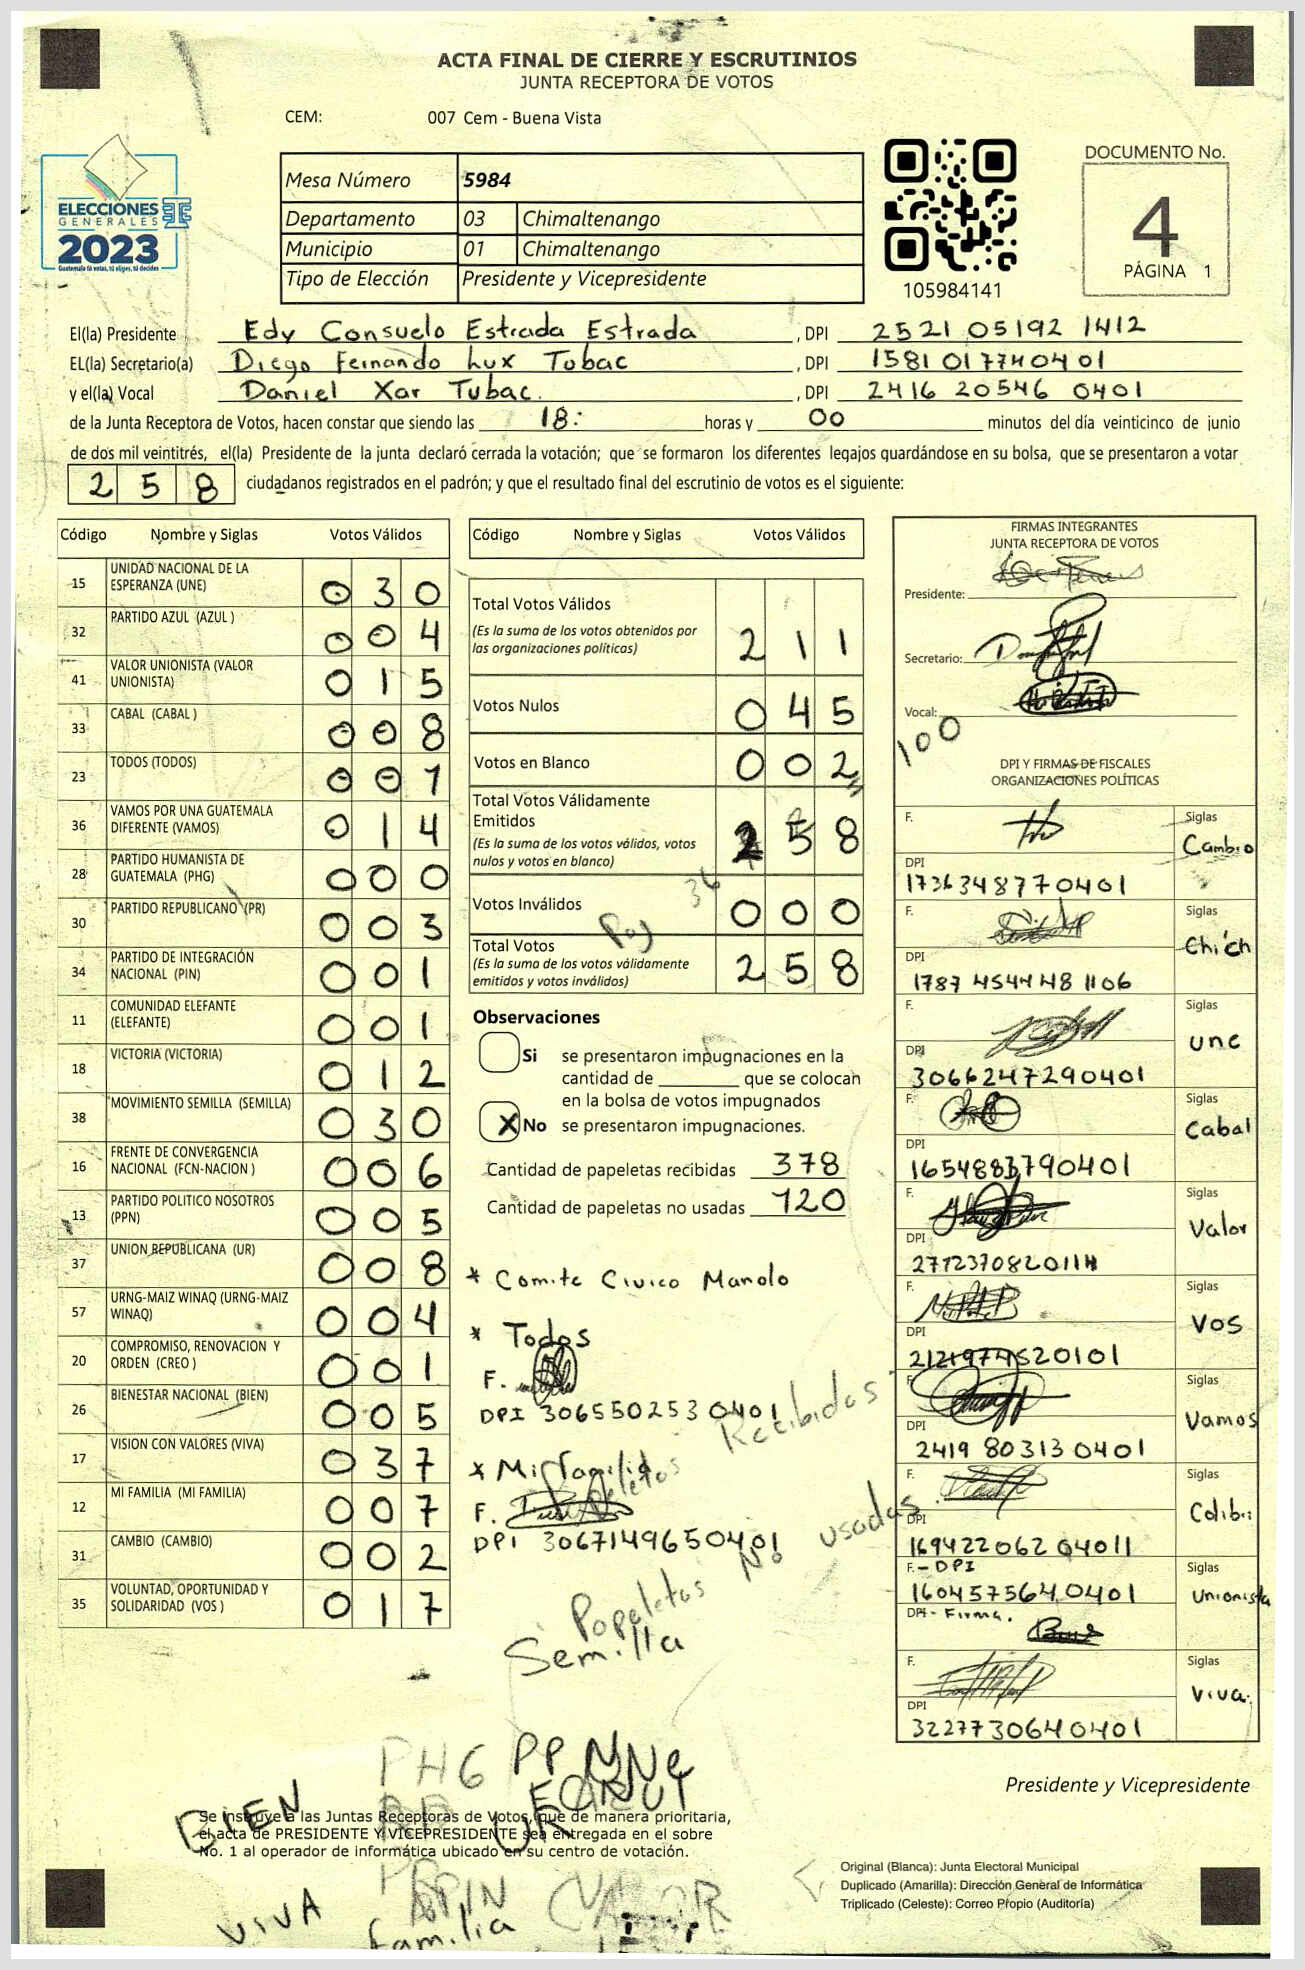 ACTA FINAL DE CIERRE Y ESCRUTINIOS
JUNTA RECEPTORA DE VOTOS
CEM: 007 Cem - Buena Vista
ELECCIONES
GENERALES
2023
Guatemala tú votas, tú eliges, tú decides
Mesa Número 5984
Departamento 03 Chimaltenango
Municipio 01 Chimaltenango
Tipo de Elección Presidente y Vicepresidente
105984141
DOCUMENTO No.
4
PÁGINA 1
El(la) Presidente Edy Consuelo Estrada Estrada , DPI 2521 05192 1412
EL(la) Secretario(a) Diego Fernando Lux Tubac , DPI 1581 01774 0401
y el(la) Vocal Daniel Xar Tubac. , DPI 2416 20546 0401
de la Junta Receptora de Votos, hacen constar que siendo las 18: horas y 00 minutos del día veinticinco de junio
de dos mil veintitrés, el(la) Presidente de la junta declaró cerrada la votación; que se formaron los diferentes legajos guardándose en su bolsa, que se presentaron a votar
258 ciudadanos registrados en el padrón; y que el resultado final del escrutinio de votos es el siguiente:
Código Nombre y Siglas Votos Válidos
15 UNIDAD NACIONAL DE LA ESPERANZA (UNE) 030
32 PARTIDO AZUL (AZUL ) 004
41 VALOR UNIONISTA (VALOR UNIONISTA) 015
33 CABAL (CABAL ) 008
23 TODOS (TODOS) 001
36 VAMOS POR UNA GUATEMALA DIFERENTE (VAMOS) 014
28 PARTIDO HUMANISTA DE GUATEMALA (PHG) 000
30 PARTIDO REPUBLICANO (PR) 003
34 PARTIDO DE INTEGRACIÓN NACIONAL (PIN) 001
11 COMUNIDAD ELEFANTE (ELEFANTE) 001
18 VICTORIA (VICTORIA) 012
38 MOVIMIENTO SEMILLA (SEMILLA) 030
16 FRENTE DE CONVERGENCIA NACIONAL (FCN-NACION ) 006
13 PARTIDO POLITICO NOSOTROS (PPN) 005
37 UNION REPUBLICANA (UR) 008
57 URNG-MAIZ WINAQ (URNG-MAIZ WINAQ) 004
20 COMPROMISO, RENOVACION Y ORDEN (CREO ) 001
26 BIENESTAR NACIONAL (BIEN) 005
17 VISION CON VALORES (VIVA) 037
12 MI FAMILIA (MI FAMILIA) 007
31 CAMBIO (CAMBIO) 002
35 VOLUNTAD, OPORTUNIDAD Y SOLIDARIDAD (VOS ) 017
Código Nombre y Siglas Votos Válidos
Total Votos Válidos 211
(Es la suma de los votos obtenidos por
las organizaciones políticas)
Votos Nulos 045
Votos en Blanco 002
Total Votos Válidamente
Emitidos 258
(Es la suma de los votos válidos, votos
nulos y votos en blanco)
Votos Inválidos 000
Total Votos 258
(Es la suma de los votos válidamente
emitidos y votos inválidos)
Observaciones
Si se presentaron impugnaciones en la
cantidad de ________ que se colocan
en la bolsa de votos impugnados
X No se presentaron impugnaciones.
Cantidad de papeletas recibidas 378
Cantidad de papeletas no usadas 120
* Comite Civico Manolo
* Todos
F.
DPI 306550253 0401
Recibidos
* Mi Familia
F.
DPI 306714965 0401
No usadas.
Papeletas
Semilla
FIRMAS INTEGRANTES
JUNTA RECEPTORA DE VOTOS
Presidente:
Secretario:
Vocal:
100
DPI Y FIRMAS DE FISCALES
ORGANIZACIONES POLÍTICAS
F. Siglas Cambio
DPI 1736348770401
F. Siglas Chich
DPI 1787 45444 48 1106
F. Siglas une
DPI 3066247290401
F. Siglas Cabal
DPI 1654883790401
F. Siglas Valor
DPI
F. Siglas VOS
DPI 2121974520101
F. Siglas Vamos
DPI 2419 80313 0401
F. Siglas Colibri
DPI
F.-DPI Siglas Unionista
1604575640401
DPI- Firma.
F. Siglas Viva.
DPI 3227730640401
Presidente y Vicepresidente
PHG PPN
BIEN
UR
Se instruye a las Juntas Receptoras de Votos, que de manera prioritaria,
el acta de PRESIDENTE Y VICEPRESIDENTE sea entregada en el sobre
No. 1 al operador de informática ubicado en su centro de votación.
VIVA
PIN
familia
Original (Blanca): Junta Electoral Municipal
Duplicado (Amarilla): Dirección General de Informática
Triplicado (Celeste): Correo Propio (Auditoría)